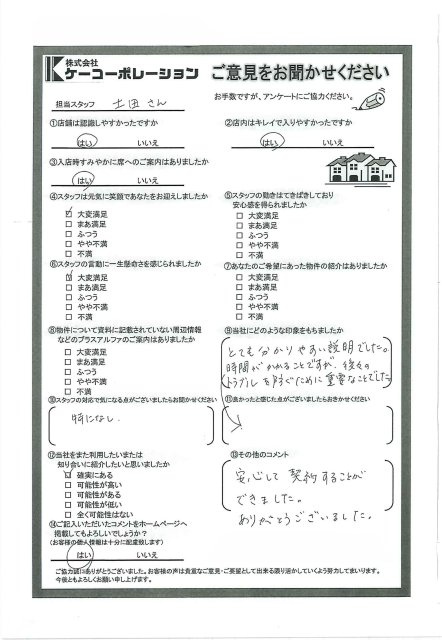 株式会社
ケーコーポレーション
ご意見をお聞かせください
担当スタッフ 土田さん
お手数ですが、アンケートにご協力ください。
①店舗は認識しやすかったですか
はい いいえ
②店内はキレイで入りやすかったですか
はい いいえ
③入店時すみやかに席へのご案内はありましたか
はい いいえ
④スタッフは元気に笑顔であなたをお迎えしましたか
☑ 大変満足
□ まあ満足
□ ふつう
□ やや不満
□ 不満
⑤スタッフの動きはてきぱきしており
安心感を得られましたか
□ 大変満足
□ まあ満足
□ ふつう
□ やや不満
□ 不満
⑥スタッフの言動に一生懸命さを感じられましたか
☑ 大変満足
□ まあ満足
□ ふつう
□ やや不満
□ 不満
⑦あなたのご希望にあった物件の紹介はありましたか
□ 大変満足
□ まあ満足
□ ふつう
□ やや不満
□ 不満
⑧物件について資料に記載されていない周辺情報
などのプラスアルファのご案内はありましたか
□ 大変満足
□ まあ満足
□ ふつう
□ やや不満
□ 不満
⑨当社にどのような印象をもちましたか
とても分かりやすい説明でした。
時間がかかることですが、後々の
トラブルを防ぐために重要なことでした
⑩スタッフの対応で気になる点がございましたらお聞かせください
特になし。
⑪良かったと感じた点がございましたらおきかせください
⑫当社をまた利用したいまたは
知り合いに紹介したいと思いましたか
☑ 確実にある
□ 可能性が高い
□ 可能性がある
□ 可能性が低い
□ 全く可能性はない
⑬その他のコメント
安心して契約することが
できました。
ありがとうございました。
⑭ご記入いただいたコメントをホームページへ
掲載してもよろしいでしょうか?
(お客様の個人情報は十分に配慮致します)
はい いいえ
ご協力誠にありがとうございました。お客様の声は貴重なご意見・ご要望として出来る限り活かしていくよう努力してまいります。
今後ともよろしくお願い申し上げます。